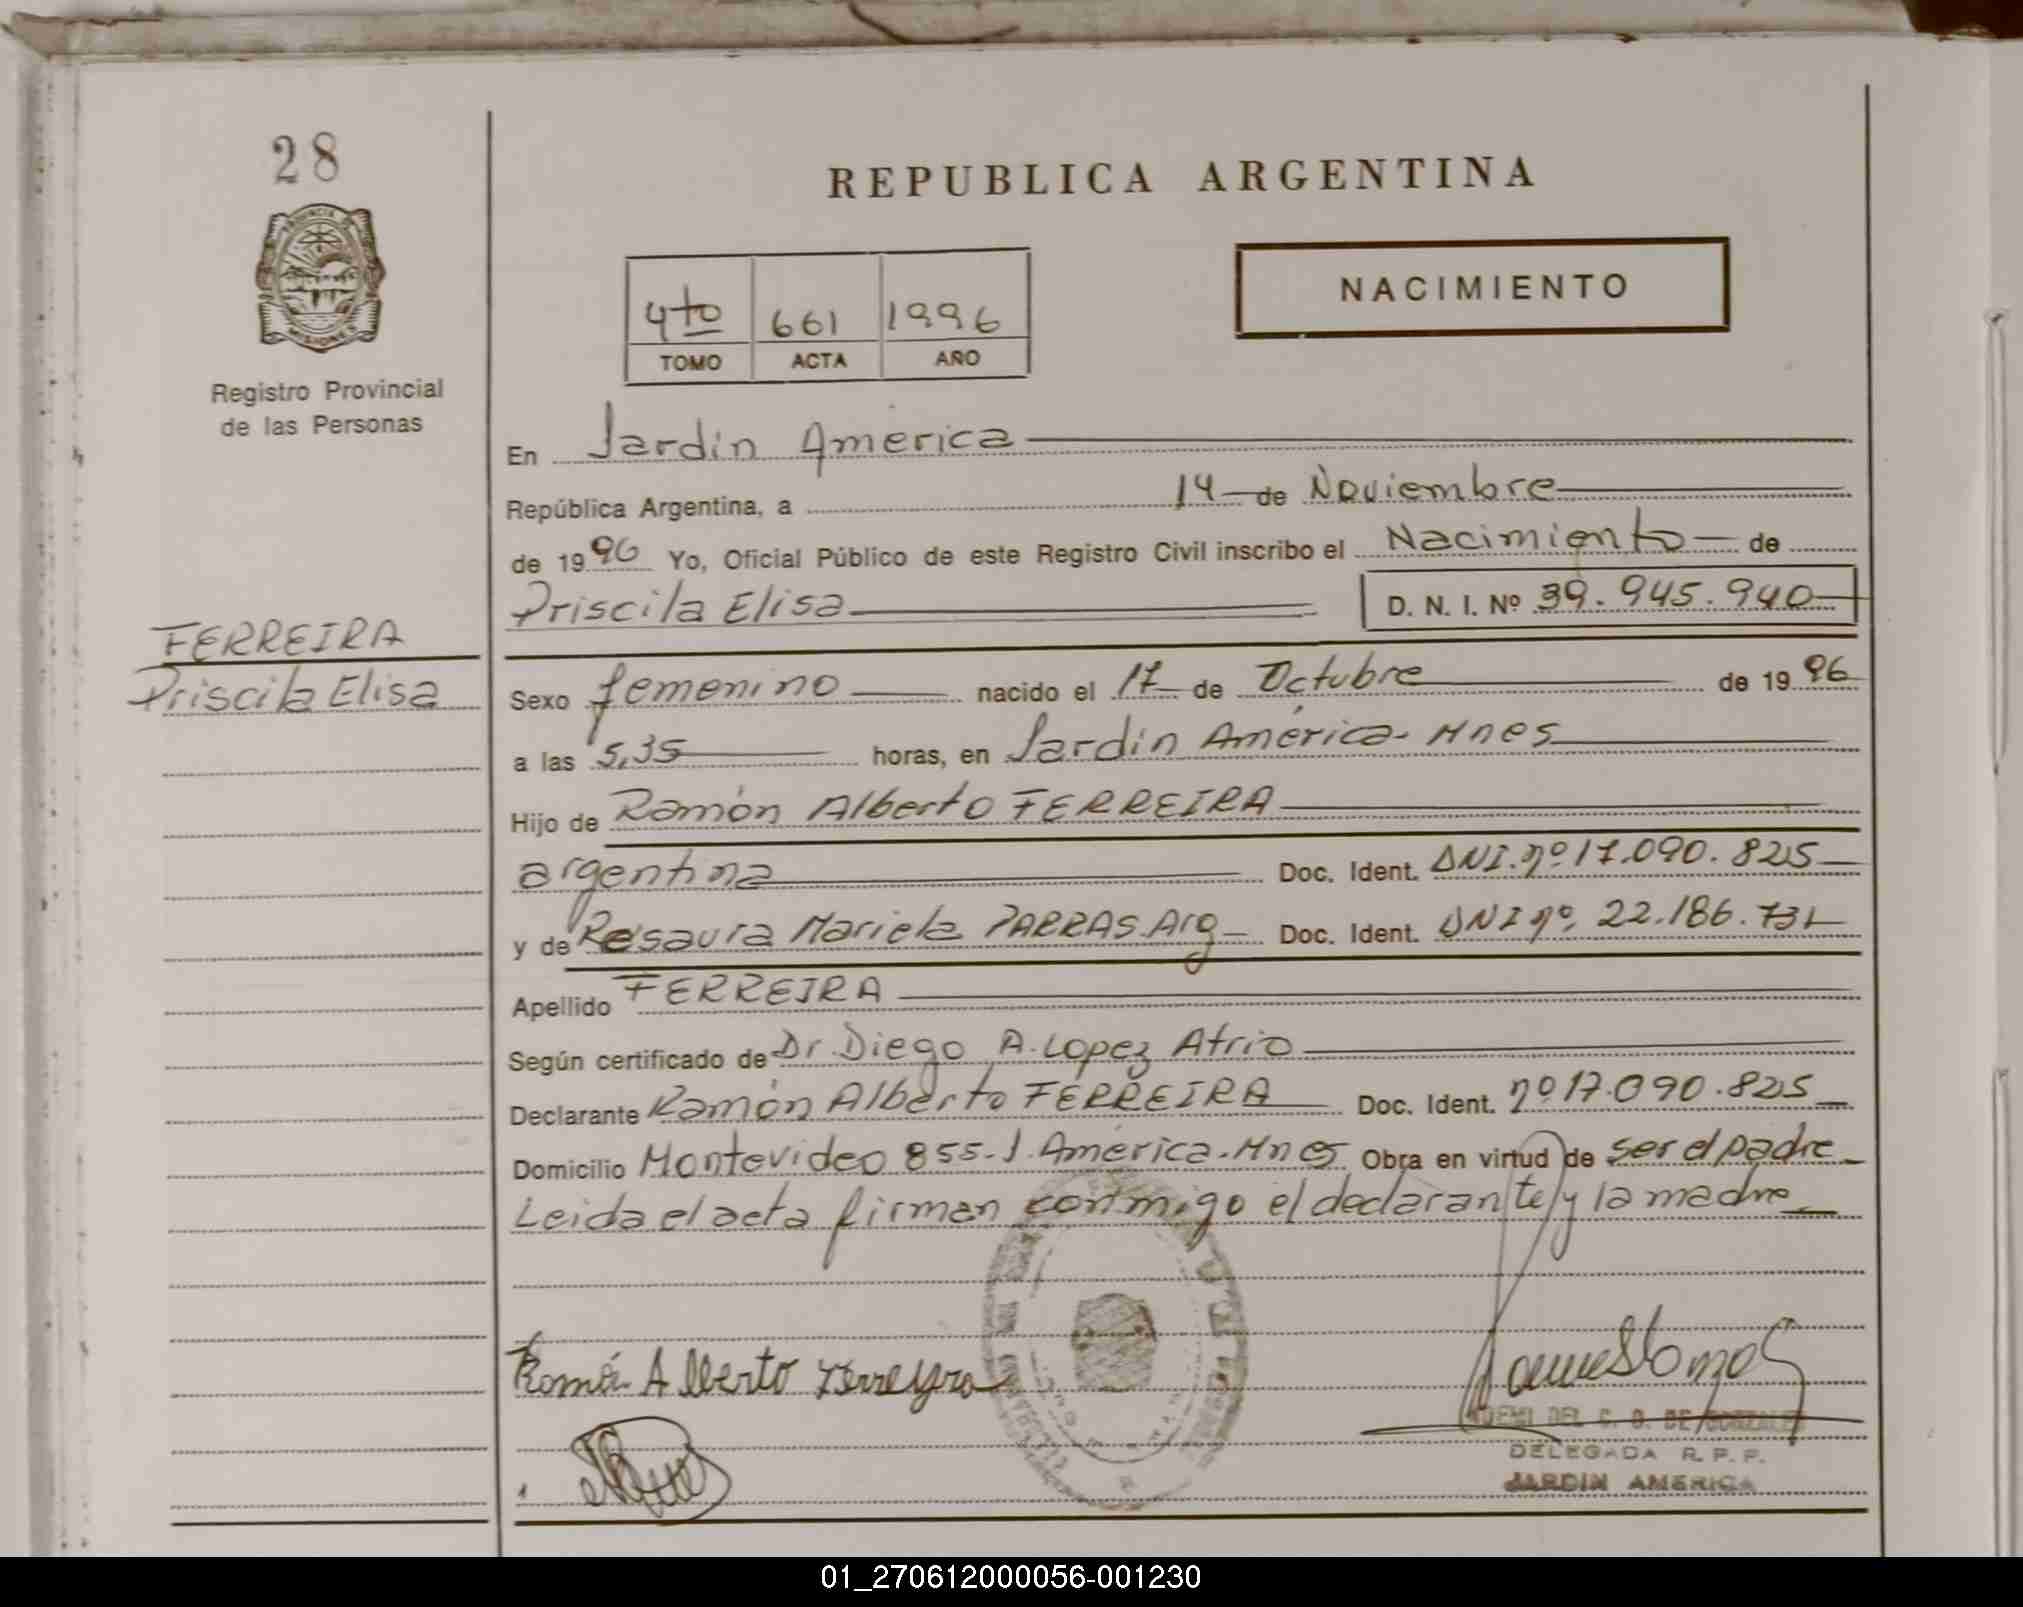 28
PROVINCIA DE
MISIONES
Registro Provincial
de las Personas
FERREIRA
Priscila Elisa
REPUBLICA ARGENTINA
NACIMIENTO
4to 661 1996
TOMO ACTA AÑO
En Jardin America
República Argentina, a 14 de Noviembre
de 1996 Yo, Oficial Público de este Registro Civil inscribo el Nacimiento de
Priscila Elisa D. N. I. Nº 39.945.940
Sexo femenino nacido el 17 de Octubre de 1996
a las 5,35 horas, en Jardin América - Mnes
Hijo de Ramón Alberto FERREIRA
argentina Doc. Ident. DNI. nº 17.090.825
y de Rosaura Mariela PARRAS. Arg Doc. Ident. DNI nº 22.186.731
Apellido FERREIRA
Según certificado de Dr. Diego A. Lopez Atrio
Declarante Ramón Alberto FERREIRA Doc. Ident. nº 17.090.825
Domicilio Montevideo 855 - J. América - Mnes Obra en virtud de ser el padre
Leida el acta firman conmigo el declarante y la madre.
Alberto Ferreyra
DEL C. G. DE GONZALEZ
DELEGADA R. P. P.
JARDIN AMERICA
01_270612000056-001230